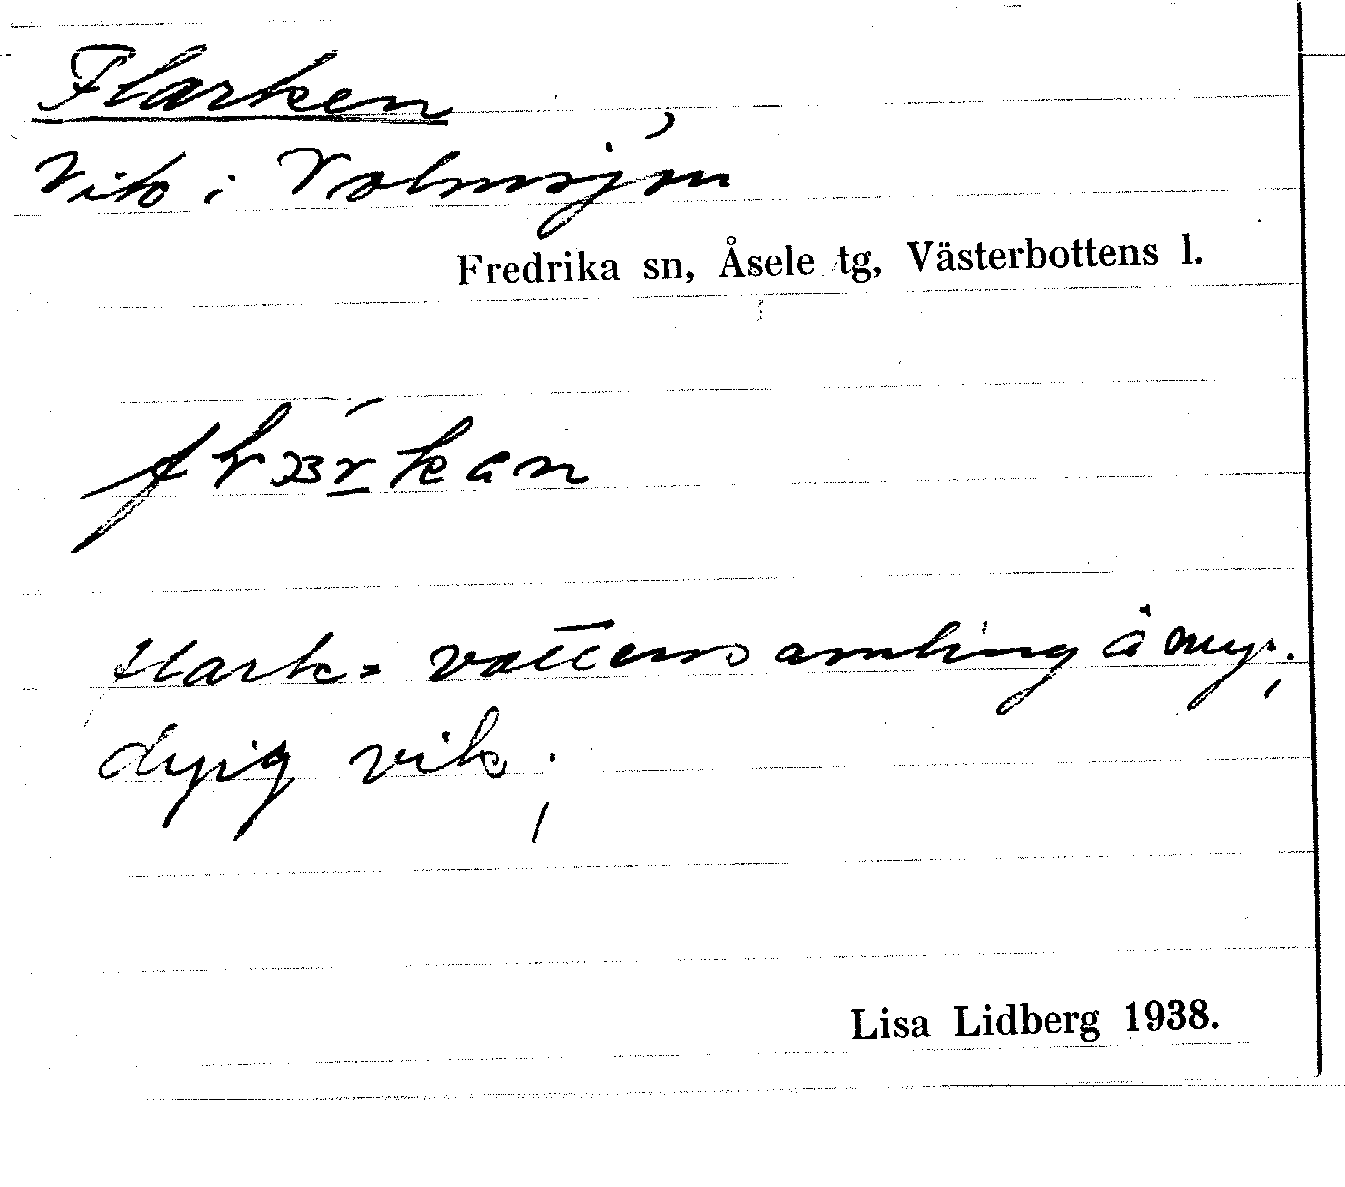 Flarken
Vik i Volmsjön
Fredrika sn, Åsele tg, Västerbottens l.
flark = vattensamling å myr;
dyig vik;
Lisa Lidberg 1938.